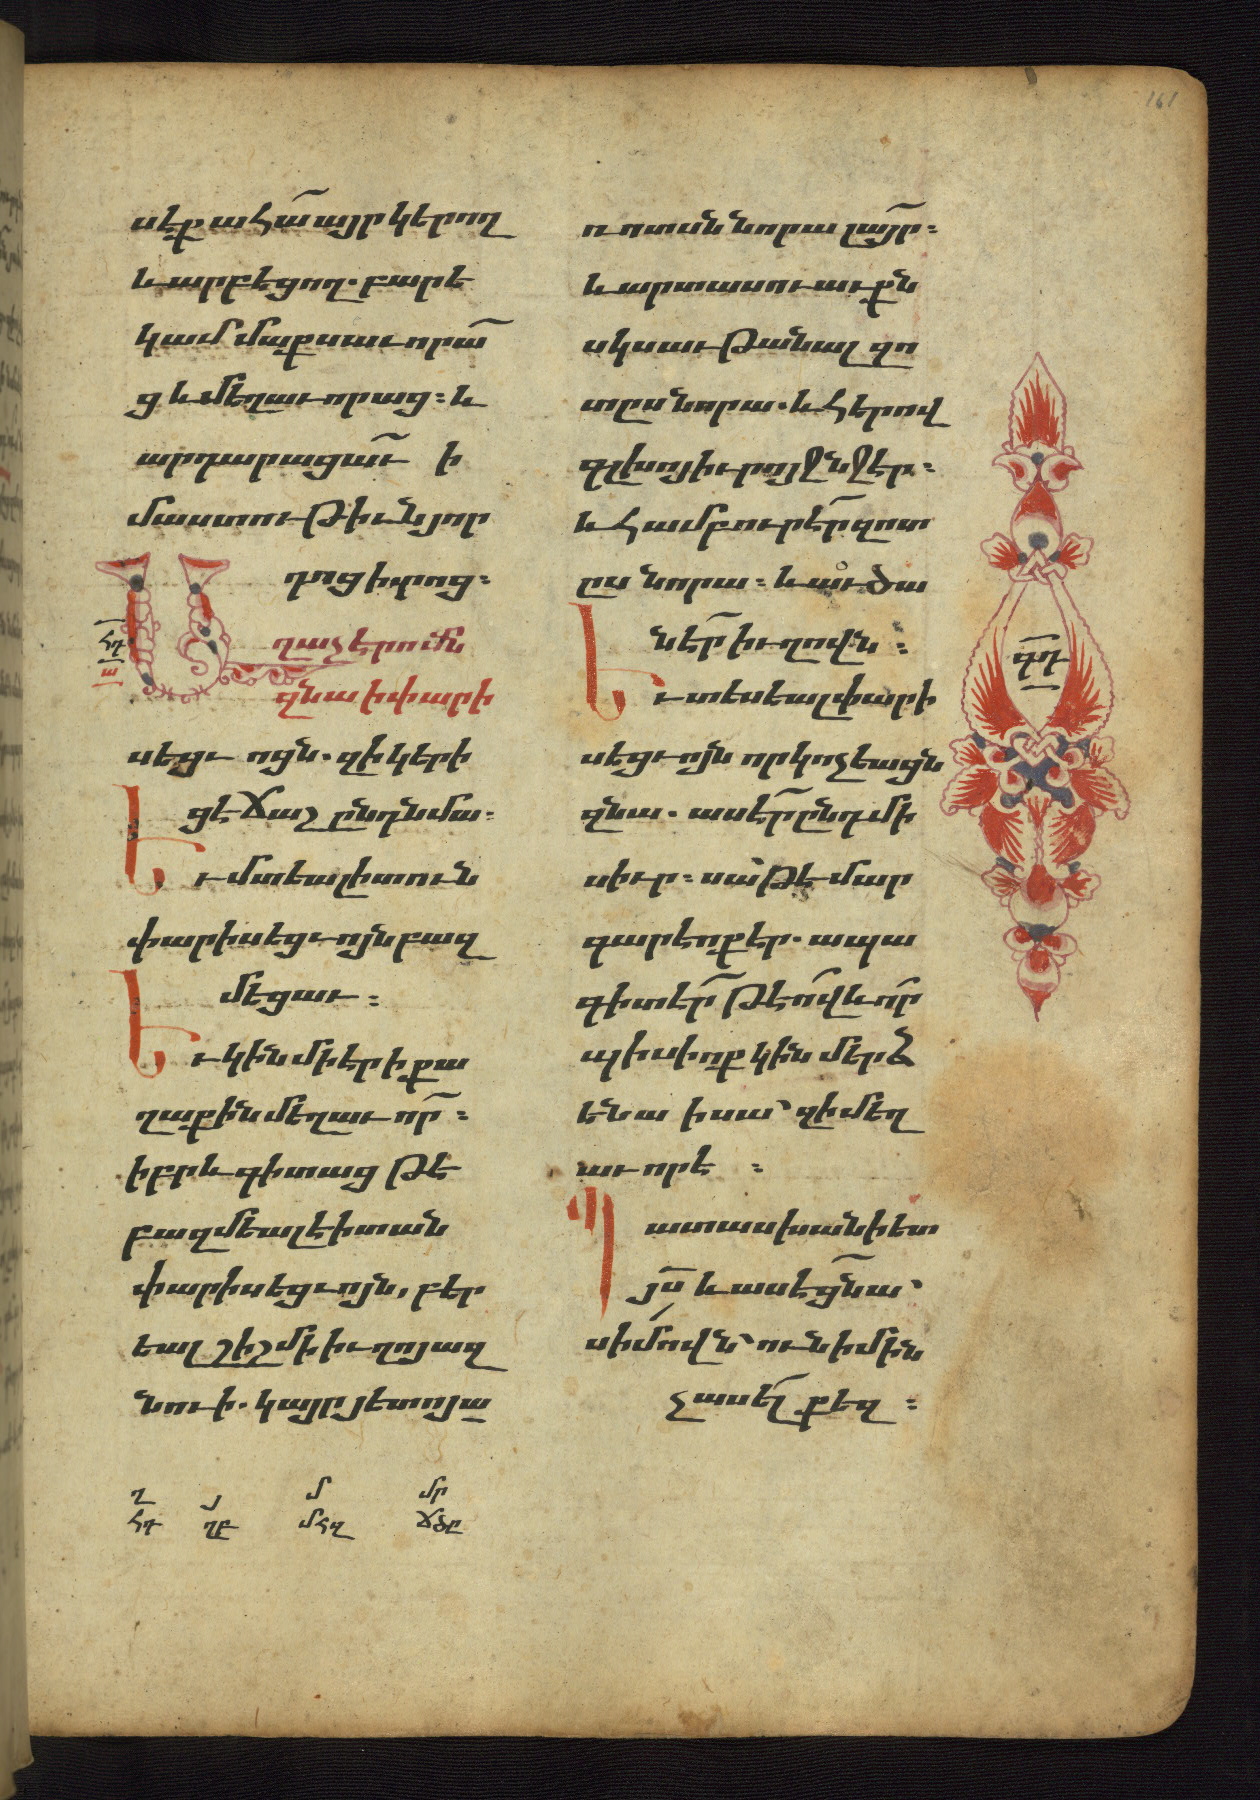 161
սէք ահա՟ այր կերող
և արբեցող. բարե
կամ մաքսաւորա՟
ց և մեղաւորաց։ և
արդարացաւ՟ ի
մաստութիւն յոր
դոց իւրոց։
հդ
ա
Աղաչէր ու՟մն
զնա ի փարի
սեցւ ոցն. զի կերի
ցէ ճաշ ընդ նմա։
Եւ մտեալ ի տուն
փարիսեցւոյն բազ
մեցաւ։
Եւ կին մի էր ի քա
ղաքին մեղաւոր՟։
իբրև գիտաց թե
բազմեալ է ի տան
փարիսեցւոյն, բեր
եալ շիշ մի իւղոյ ազ
նուի. կայր յետոյ ա
ռ ոտսն նորա լայր՟։
և արտասուաւքն
սկսաւ թանալ զո
տըս նորա. և հերով
գլխոյ իւրոյ ջնջեր։
և համբուրէր՟ զոտ
ըս նորա։ և աւծա
նէր՟ իւղովն։
գդ
Եւ տեսեալ փարի
սեցւոյն որ կոչեացն
զնա. ասէր՟ ընդ մի
տս իւր։ սա՟ թե մար
գարէ ոք էր. ապա
գիտէր՟ թե ո՟վ և որ՟
պիսի ոք կին մերձ
ենա ի սա՝ զի մեղ
աւոր է։
Պատասխանի ետ
յս՟ և ասէ ցնա՟՝
սիմովն՝ ունիմ ինչ
չ ասել՟ քեզ։
ղ յ մ մր
հդ ղբ մհզ ճծը